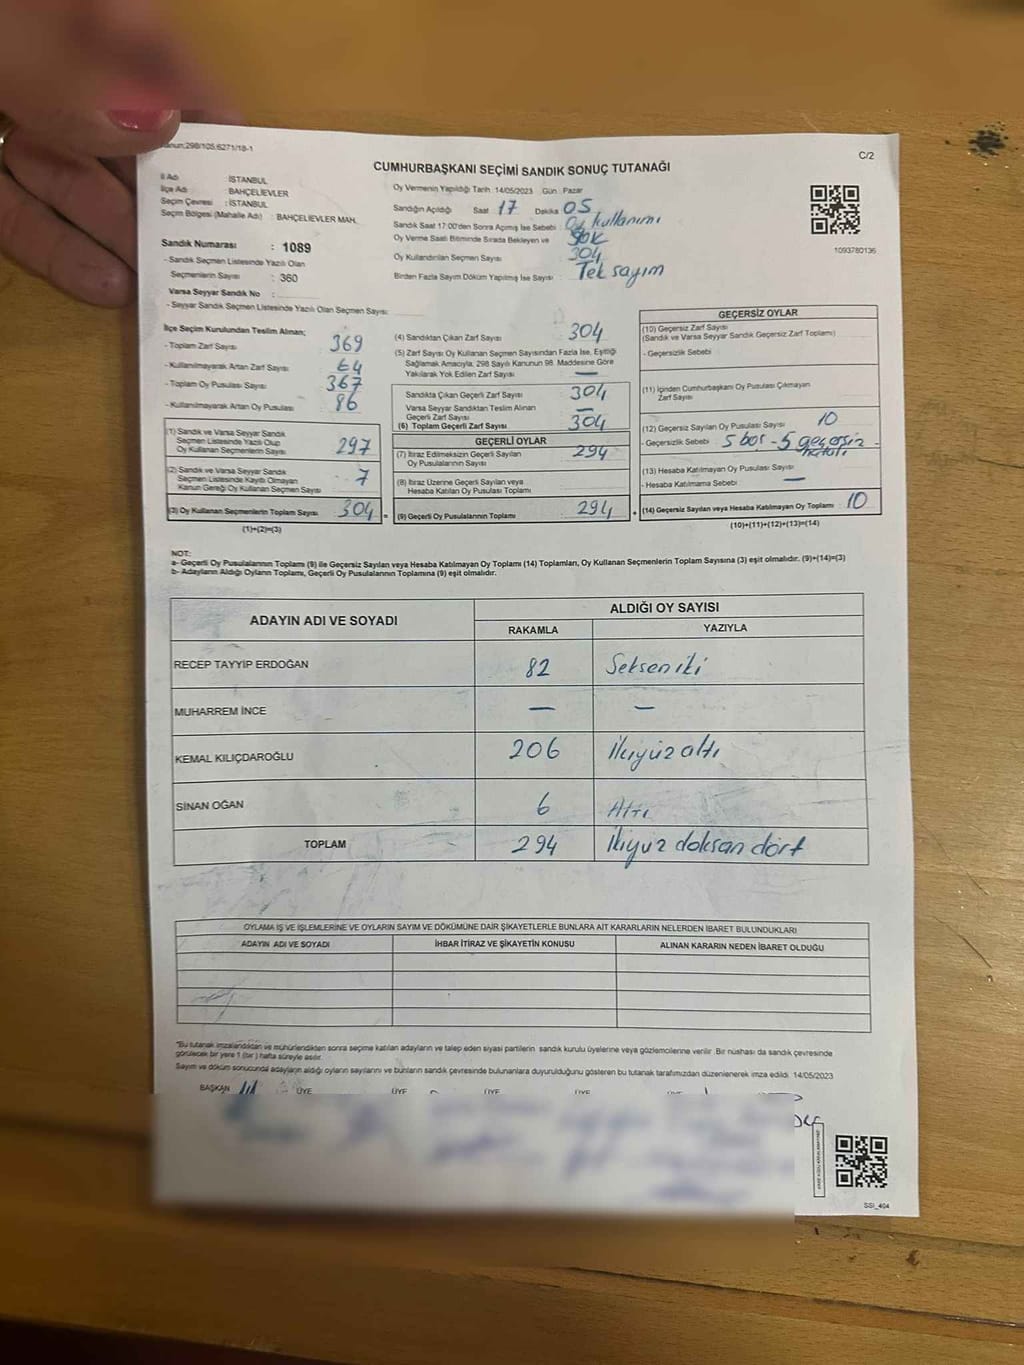 298/105,6271/18-1
C/2
CUMHURBAŞKANI SEÇİMİ SANDIK SONUÇ TUTANAĞI
İl Adı : İSTANBUL
İlçe Adı : BAHÇELİEVLER
Seçim Çevresi : İSTANBUL
Seçim Bölgesi (Mahalle Adı) : BAHÇELİEVLER MAH.
Sandık Numarası : 1089
- Sandık Seçmen Listesinde Yazılı Olan
Seçmenlerin Sayısı : 360
Varsa Seyyar Sandık No :
- Seyyar Sandık Seçmen Listesinde Yazılı Olan Seçmen Sayısı:
Oy Vermenin Yapıldığı Tarih 14/05/2023 Gün Pazar
Sandığın Açıldığı Saat 17 Dakika 05
Sandık Saat 17:00'den Sonra Açılmış İse Sebebi : Oy kullanımı
Oy Verme Saati Bitiminde Sırada Bekleyen ve yok
Oy Kullandırılan Seçmen Sayısı : 304
Birden Fazla Sayım Döküm Yapılmış İse Sayısı : Tek sayım
1093780136
İlçe Seçim Kurulundan Teslim Alınan;
- Toplam Zarf Sayısı : 369
- Kullanılmayarak Artan Zarf Sayısı : 64
- Toplam Oy Pusulası Sayısı : 367
- Kullanılmayarak Artan Oy Pusulası : 86
(1) Sandık ve Varsa Seyyar Sandık
Seçmen Listesinde Yazılı Olup
Oy Kullanan Seçmenlerin Sayısı : 297
(2) Sandık ve Varsa Seyyar Sandık
Seçmen Listesinde Kayıtlı Olmayan
Kanun Gereği Oy Kullanan Seçmen Sayısı : 7
(3) Oy Kullanan Seçmenlerin Toplam Sayısı : 304 =
(1)+(2)=(3)
(4) Sandıktan Çıkan Zarf Sayısı : 304
(5) Zarf Sayısı Oy Kullanan Seçmen Sayısından Fazla İse, Eşitliği
Sağlamak Amacıyla, 298 Sayılı Kanunun 98. Maddesine Göre
Yakılarak Yok Edilen Zarf Sayısı : —
Sandıkta Çıkan Geçerli Zarf Sayısı : 304
Varsa Seyyar Sandıktan Teslim Alınan
Geçerli Zarf Sayısı : —
(6) Toplam Geçerli Zarf Sayısı : 304
GEÇERLİ OYLAR
(7) İtiraz Edilmeksizin Geçerli Sayılan
Oy Pusulalarının Sayısı : 294
(8) İtiraz Üzerine Geçerli Sayılan veya
Hesaba Katılan Oy Pusulası Toplamı :
(9) Geçerli Oy Pusulalarının Toplamı : 294 +
GEÇERSİZ OYLAR
(10) Geçersiz Zarf Sayısı
(Sandık ve Varsa Seyyar Sandık Geçersiz Zarf Toplamı) :
- Geçersizlik Sebebi :
(11) İçinden Cumhurbaşkanı Oy Pusulası Çıkmayan
Zarf Sayısı :
(12) Geçersiz Sayılan Oy Pusulası Sayısı : 10
- Geçersizlik Sebebi : 5 boş - 5 geçersiz -
hatalı
(13) Hesaba Katılmayan Oy Pusulası Sayısı :
- Hesaba Katılmama Sebebi : —
(14) Geçersiz Sayılan veya Hesaba Katılmayan Oy Toplamı : 10
(10)+(11)+(12)+(13)=(14)
NOT:
a- Geçerli Oy Pusulalarının Toplamı (9) ile Geçersiz Sayılan veya Hesaba Katılmayan Oy Toplamı (14) Toplamları, Oy Kullanan Seçmenlerin Toplam Sayısına (3) eşit olmalıdır. (9)+(14)=(3)
b- Adayların Aldığı Oyların Toplamı, Geçerli Oy Pusulalarının Toplamına (9) eşit olmalıdır.
ADAYIN ADI VE SOYADI
ALDIĞI OY SAYISI
RAKAMLA YAZIYLA
RECEP TAYYİP ERDOĞAN 82 Seksen iki
MUHARREM İNCE — —
KEMAL KILIÇDAROĞLU 206 İkiyüz altı
SİNAN OĞAN 6 Altı
TOPLAM 294 İkiyüz doksan dört
OYLAMA İŞ VE İŞLEMLERİNE VE OYLARIN SAYIM VE DÖKÜMÜNE DAİR ŞİKAYETLERLE BUNLARA AİT KARARLARIN NELERDEN İBARET BULUNDUKLARI
ADAYIN ADI VE SOYADI İHBAR İTİRAZ VE ŞİKAYETİN KONUSU ALINAN KARARIN NEDEN İBARET OLDUĞU
"Bu tutanak imzalandıktan ve mühürlendikten sonra seçime katılan adayların ve talep eden siyasi partilerin sandık kurulu üyelerine veya gözlemcilerine verilir. Bir nüshası da sandık çevresinde
görülecek bir yere 1 (bir) hafta süreyle asılır.
Sayım ve döküm sonucunda adayların aldığı oyların sayılarını ve bunların sandık çevresinde bulunanlara duyurulduğunu gösteren bu tutanak tarafımızdan düzenlenerek imza edildi. 14/05/2023
BAŞKAN ÜYE ÜYE ÜYE ÜYE ÜYE
SSI_404